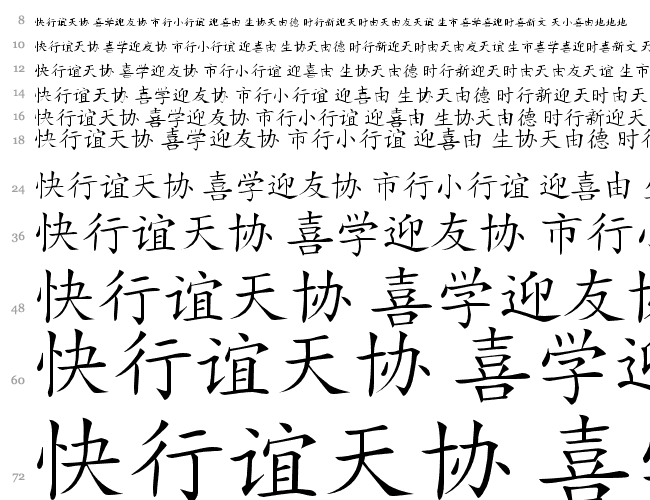 8 快行谊天协 喜学迎友协 市行小行谊 迎喜由 生协天由德 时行新迎天时由天由友天谊 生市喜学喜迎时喜新文 天小喜由地地地
10 快行谊天协 喜学迎友协 市行小行谊 迎喜由 生协天由德 时行新迎天时由天由友天谊生市喜学喜迎时喜新文
12 快行谊天协 喜学迎友协 市行小行谊 迎喜由 生协天由德 时行新迎天时由天由友天谊 生市
14 快行谊天协 喜学迎友协 市行小行谊 迎喜由 生协天由德 时行新迎天时由天
16 快行谊天协 喜学迎友协 市行小行谊 迎喜由 生协天由德 时行新迎天
18 快行谊天协 喜学迎友协 市行小行谊 迎喜由 生协天由德 时行
24 快行谊天协 喜学迎友协 市行小行谊 迎喜由
36 快行谊天协 喜学迎友协 市行
48 快行谊天协 喜学迎友
60 快行谊天协 喜学
72 快行谊天协 喜